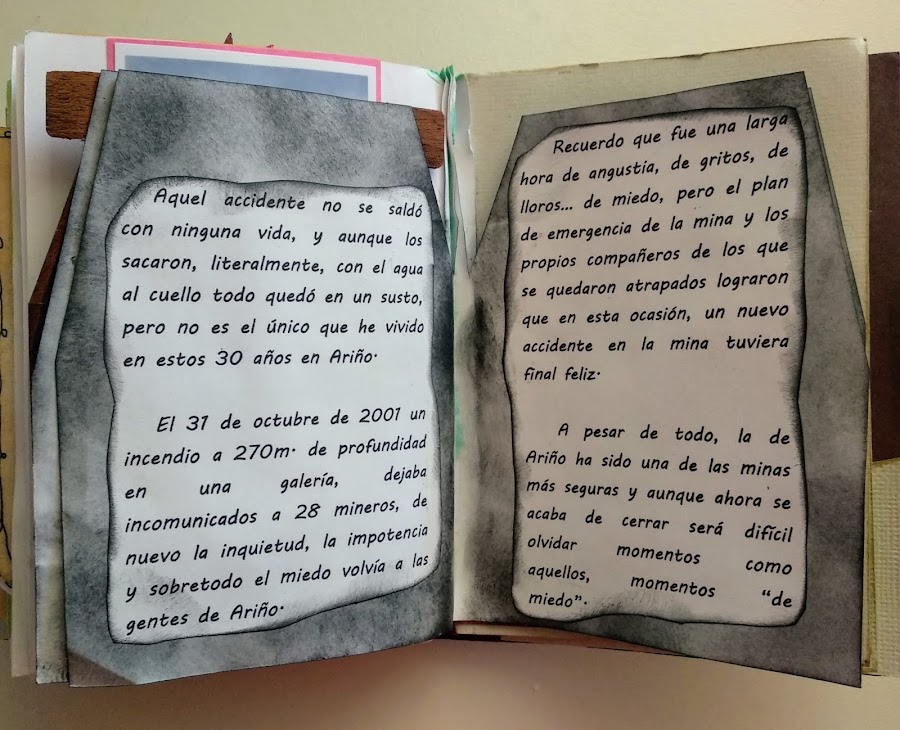 Aquel accidente no se saldó
con ninguna vida, y aunque los
sacaron, literalmente, con el agua
al cuello todo quedó en un susto,
pero no es el único que he vivido
en estos 30 años en Ariño.
El 31 de octubre de 2001 un
incendio a 270m. de profundidad
en una galería, dejaba
incomunicados a 28 mineros, de
nuevo la inquietud, la impotencia
y sobretodo el miedo volvía a las
gentes de Ariño.
Recuerdo que fue una larga
hora de angustia, de gritos, de
lloros... de miedo, pero el plan
de emergencia de la mina y los
propios compañeros de los que
se quedaron atrapados lograron
que en esta ocasión, un nuevo
accidente en la mina tuviera
final feliz.
A pesar de todo, la de
Ariño ha sido una de las minas
más seguras y aunque ahora se
acaba de cerrar será difícil
olvidar momentos como
aquellos, momentos “de
miedo”.